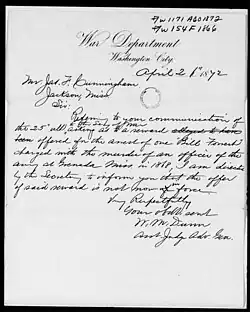 P/W 1171 AGO 1872
P/W 154 F 1866
War Department
Washington City.
April 2 1872
Mr Jas. F. Cunningham
Jackson, Miss
Sir:
Refering to your communication of
the 25" ult, asking if a reward
offered for the arrest of one Bill Forrest
charged with the murder of an officer of the
army at Grenada Miss. in 1868, I am directed
by the Secretary to inform you that the offer
of said reward is not now in force
Very Respectfully
Your obdt servt
W. M. Dunn
Asst Judge Adv. Gen.